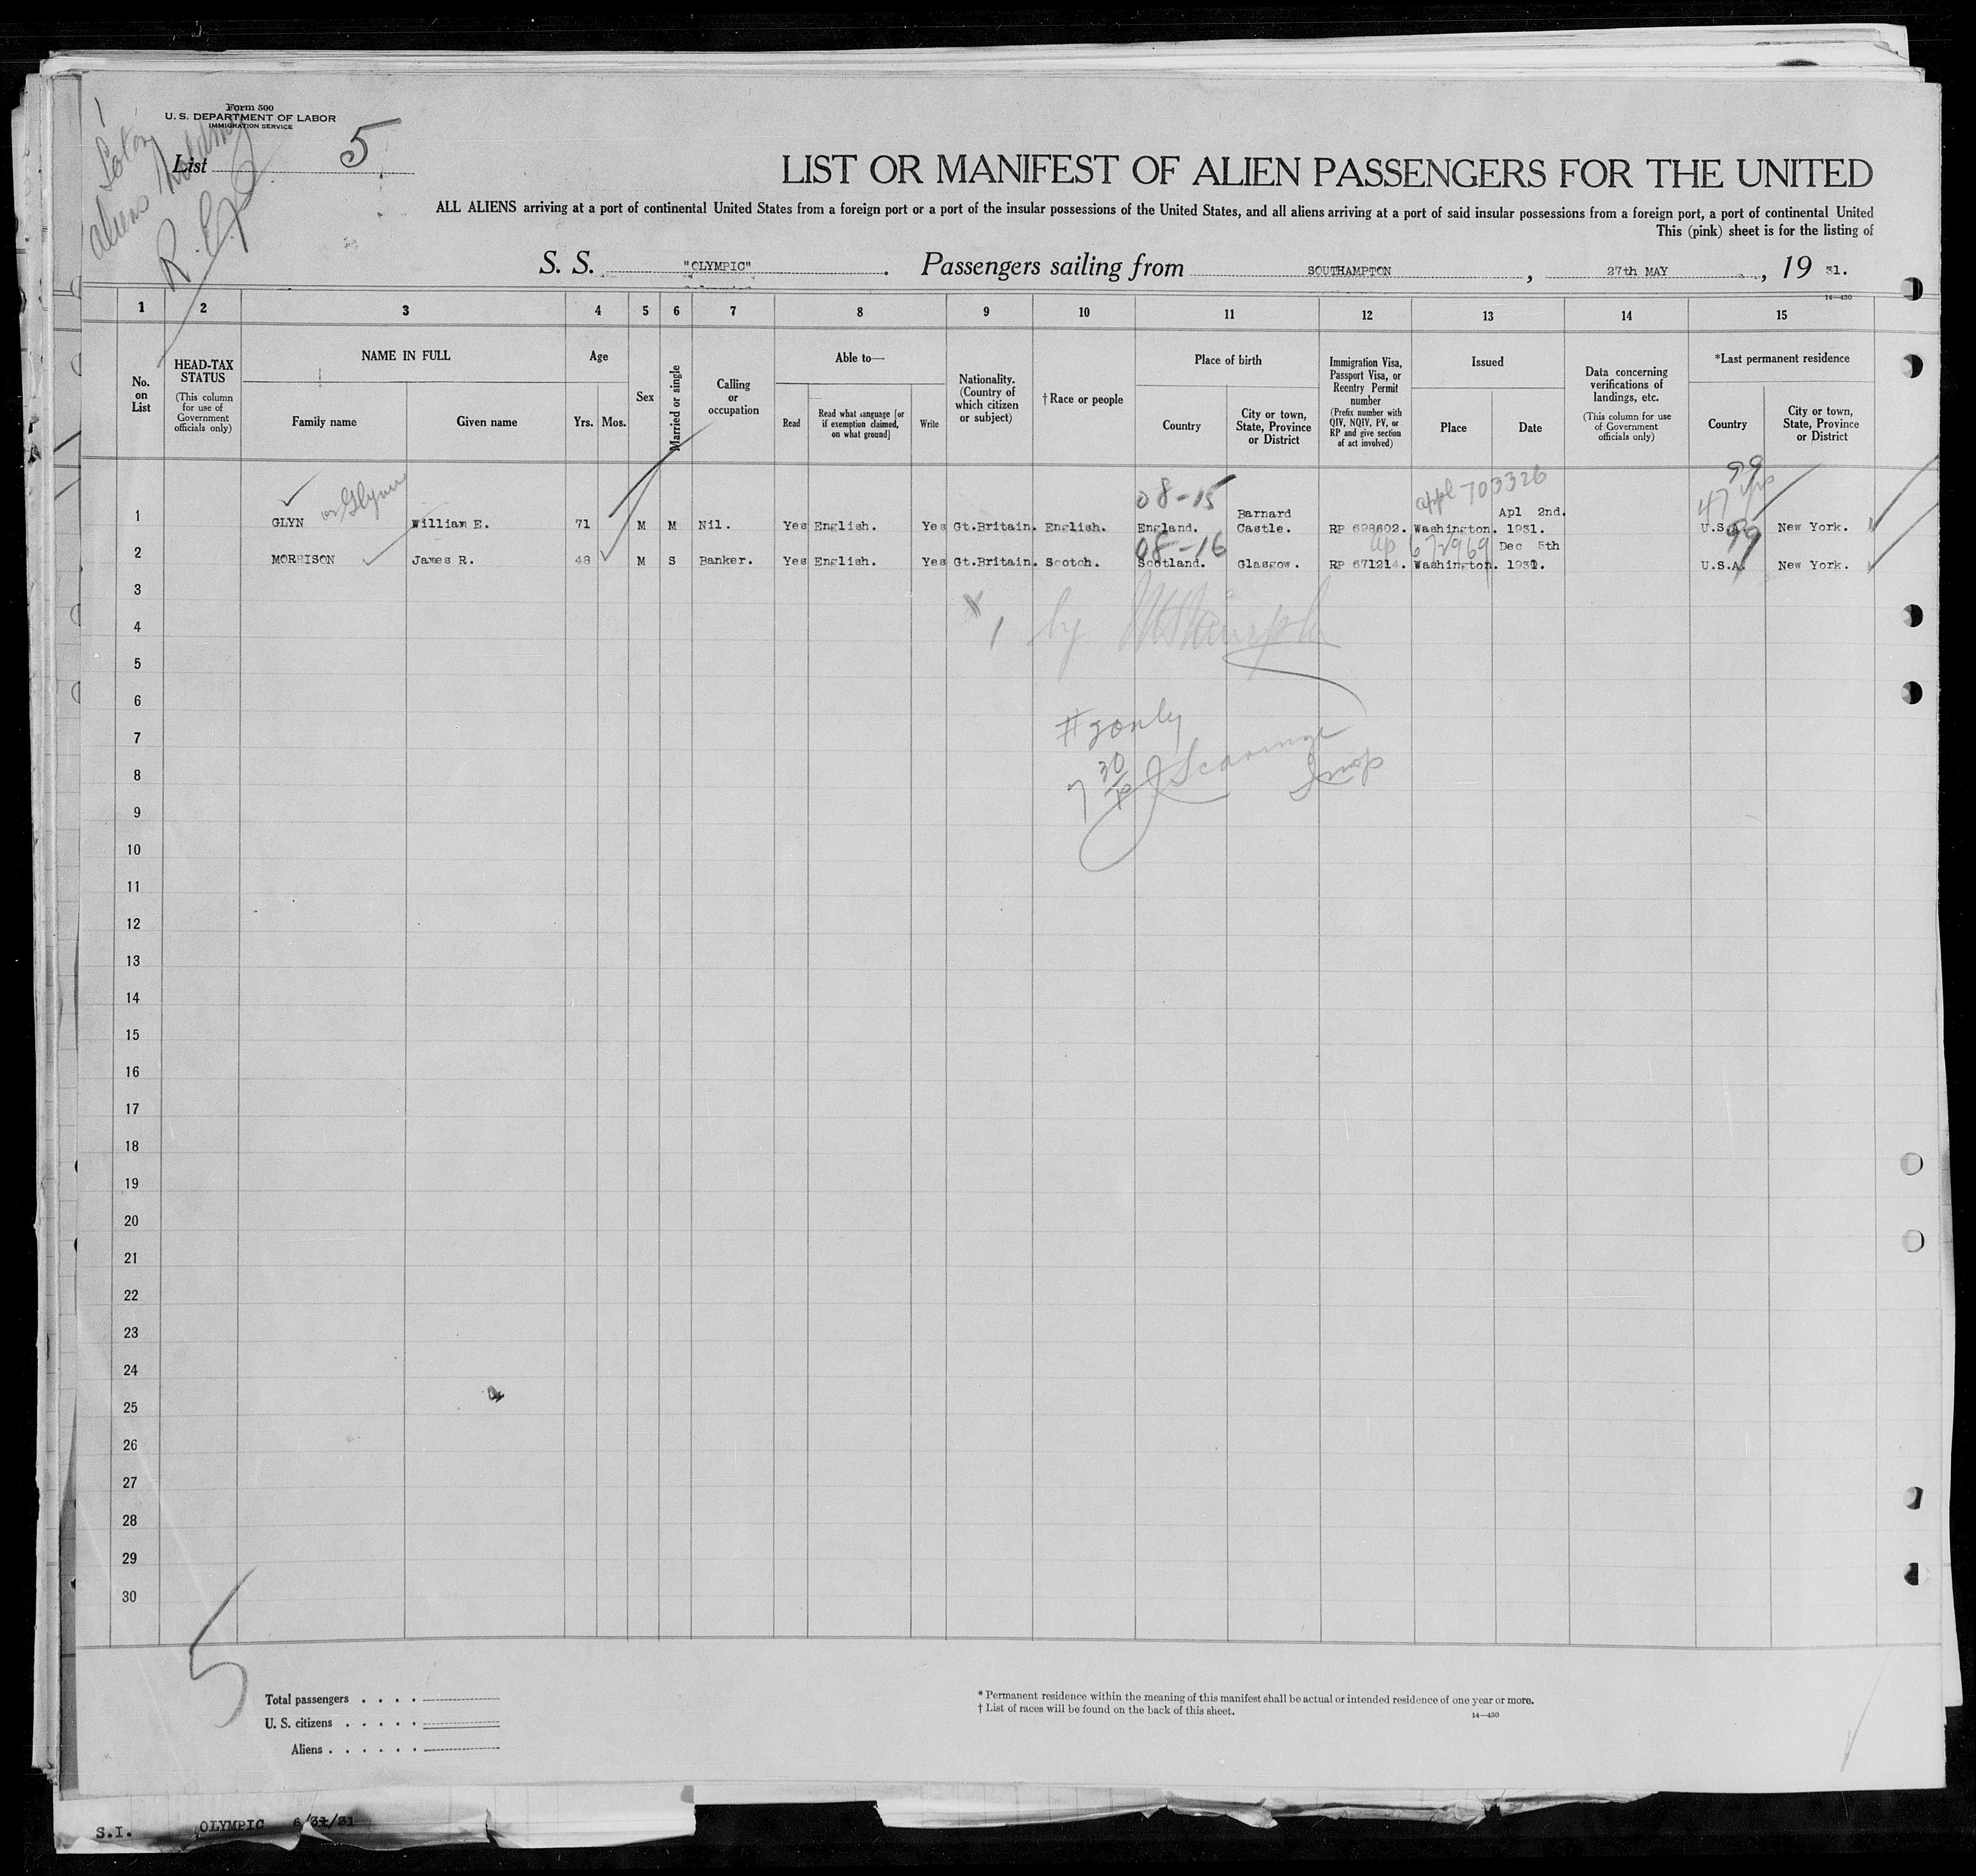 Form 500
U. S. DEPARTMENT OF LABOR
IMMIGRATION SERVICE
List 5
aliens holding
R. E. P.
LIST OR MANIFEST OF ALIEN PASSENGERS FOR THE UNITED
ALL ALIENS arriving at a port of continental United States from a foreign port or a port of the insular possessions of the United States, and all aliens arriving at a port of said insular possessions from a foreign port, a port of continental United
This (pink) sheet is for the listing of
S. S. "OLYMPIC" . Passengers sailing from SOUTHAMPTON , 27th MAY , 19 31.
14—430
1 2 3 4 5 6 7 8 9 10 11 12 13 14 15
No. on List
HEAD-TAX STATUS
(This column for use of Government officials only)
NAME IN FULL
Family name Given name
Age
Yrs. Mos.
Sex
Married or single
Calling or occupation
Able to—
Read Read what language [or if exemption claimed, on what ground] Write
Nationality. (Country of which citizen or subject)
†Race or people
Place of birth
Country City or town, State, Province or District
Immigration Visa, Passport Visa, or Reentry Permit number
(Prefix number with QIV, NQIV, PV, or RP and give section of act involved)
Issued
Place Date
Data concerning verifications of landings, etc.
(This column for use of Government officials only)
*Last permanent residence
Country City or town, State, Province or District
or Glynn 08-15 appl 703326 99 47 yrs
1 GLYN William E. 71 M M Nil. Yes English. Yes Gt.Britain. English. England. Barnard Castle. RP 698602. Washington. Apl 2nd. 1931. U.S.A. New York.
08-16 ap 672969 99
2 MORRISON James R. 48 M S Banker. Yes English. Yes Gt.Britain. Scotch. Scotland. Glasgow. RP 671214. Washington. Dec 5th 1930. U.S.A. New York.
3
4 1 by
5
6
7 #2 only
8 7 30
9
10
11
12
13
14
15
16
17
18
19
20
21
22
23
24
25
26
27
28
29
30
5
Total passengers . . . .
U. S. citizens . . . . .
Aliens . . . . . .
* Permanent residence within the meaning of this manifest shall be actual or intended residence of one year or more.
† List of races will be found on the back of this sheet.
14—430
S.I. OLYMPIC 6/31/31